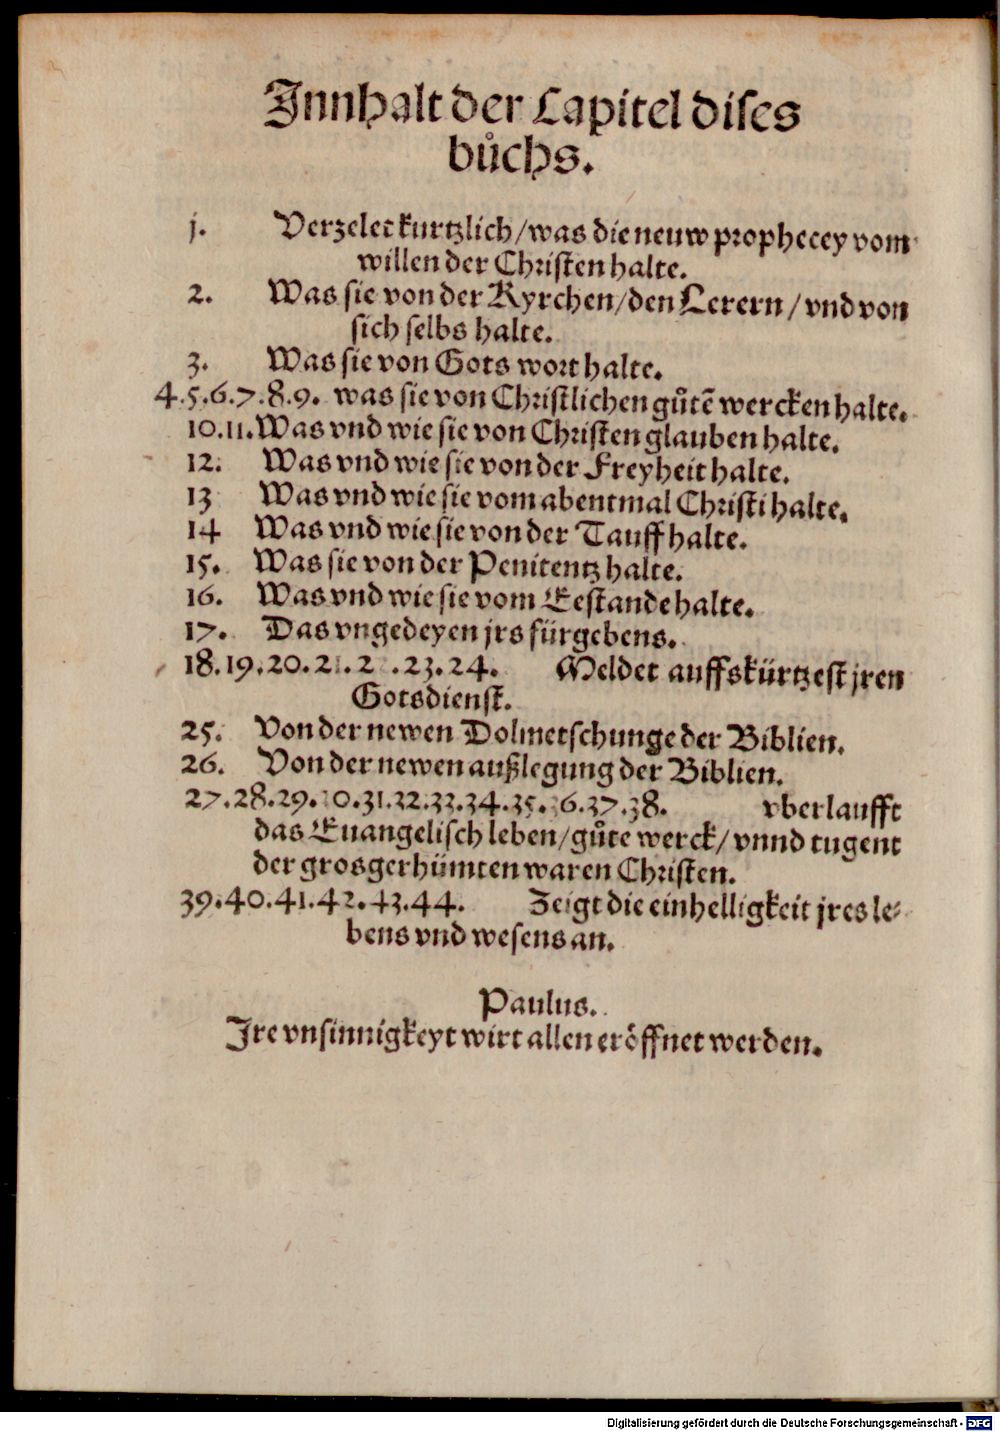 Innhalt der Capitel dises
bůchs.
j. Verzelet kurtzlich/was die neuw prophecey vom
willen der Christen halte.
2. Was sie von der Kyrchen/den Lerern/vnd von
sich selbs halte.
3. Was sie von Gots wort halte.
4.5.6.7.8.9. was sie von Christlichen gůtē wercken halte.
10.11. Was vnd wie sie von Christen glauben halte.
12. Was vnd wie sie von der Freyheit halte.
13 Was vnd wie sie vom abentmal Christi halte.
14 Was vnd wie sie von der Tauff halte.
15. Was sie von der Penitentz halte.
16. Was vnd wie sie vom Eestande halte.
17. Das vngedeyen jrs fürgebens.
18.19.20.21.2 .23.24. Meldet auffs kürtzest jren
Gotsdienst.
25. Von der newen Dolmetschunge der Biblien.
26. Von der newen außlegung der Biblien.
27.28.29.30.31.32.33.34.35.36.37.38. vberlaufft
das Euangelisch leben/gůte werck/vnnd tugent
der grosgerhümten waren Christen.
39.40.41.42.43.44. Zeigt die einhelligkeit jres le-
bens vnd wesens an.
Paulus.
Ire vnsinnigkeyt wirt allen eröffnet werden.
Digitalisierung gefördert durch die Deutsche Forschungsgemeinschaft - DFG